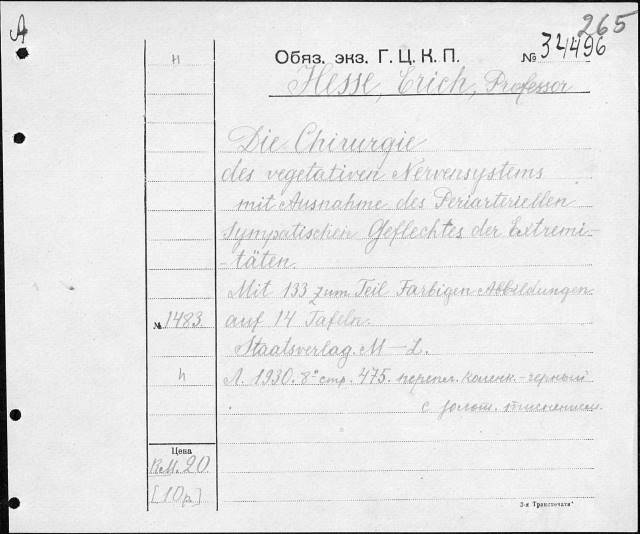 A
265
н
Обяз. экз. Г. Ц. К. П.
№ 34496
Hesse, Erich, Professor
Die Chirurgie
des vegetativen Nervensystems
mit Ausnahme des Periarteriellen
Sympatischen Geflechtes der Extremi-
-täten.
Mit 133 zum Teil Farbigen Abbildungen
№ 1483. auf 14 Tafeln.
Staatsverlag. M – L.
н Л. 1930. 8° стр. 475. перепл. коленк. - черный
с золот. тиснением.
Цена
RM. 20
[10 р.]
3-я Транспечати